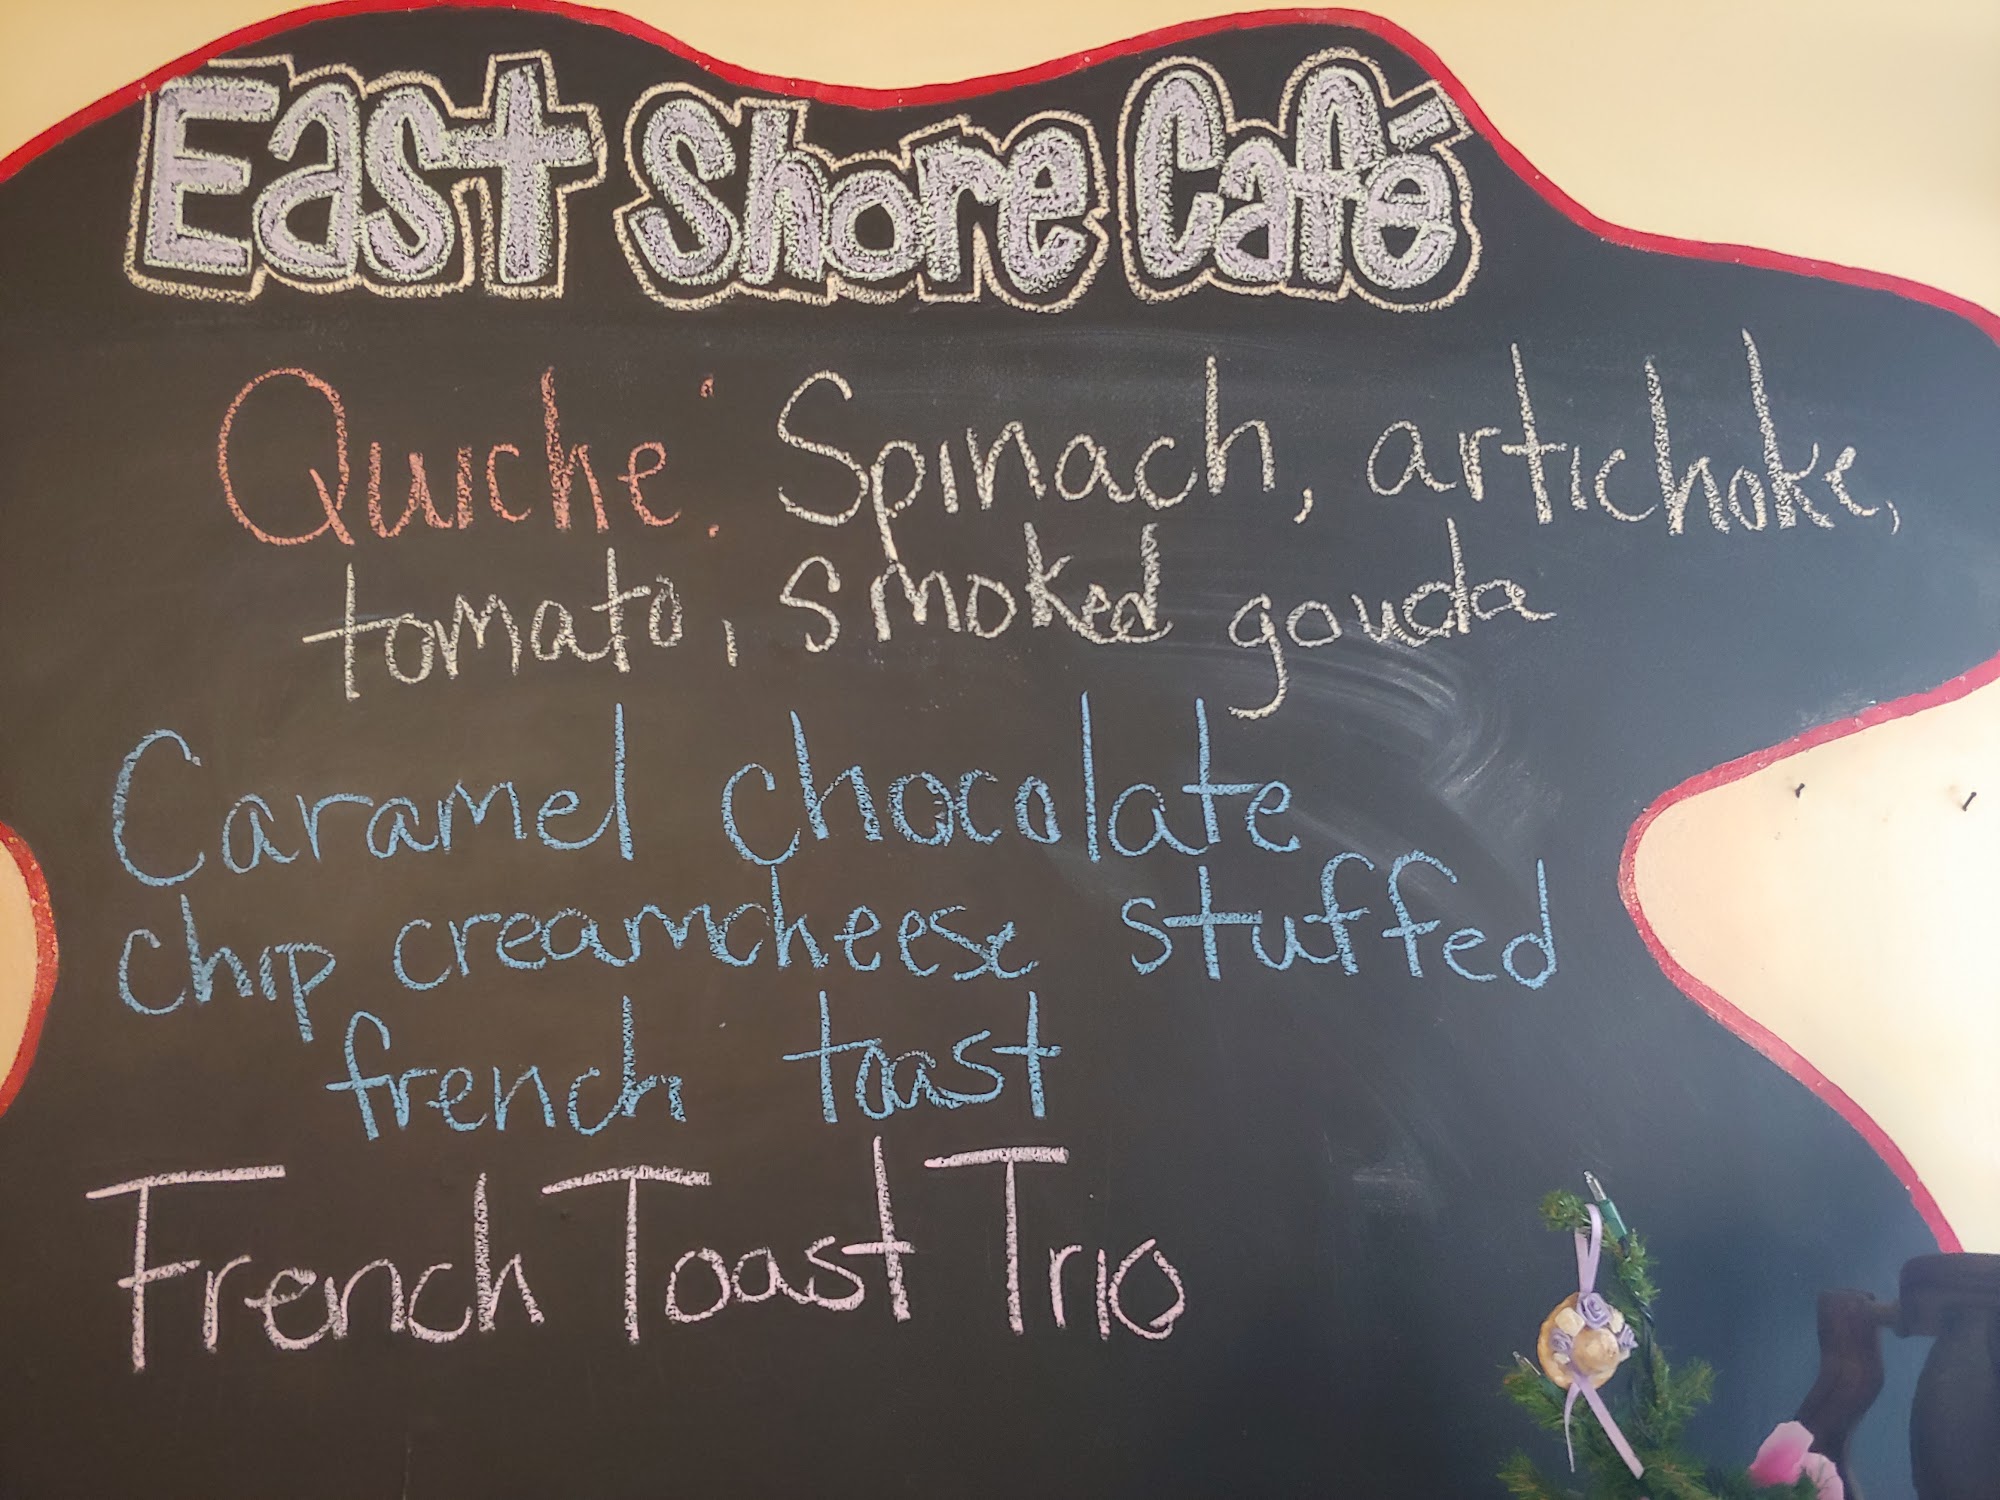 East Shore Café
Quiche: Spinach, artichoke,
tomato, smoked gouda
Caramel chocolate
chip creamcheese stuffed
french toast
French Toast Trio